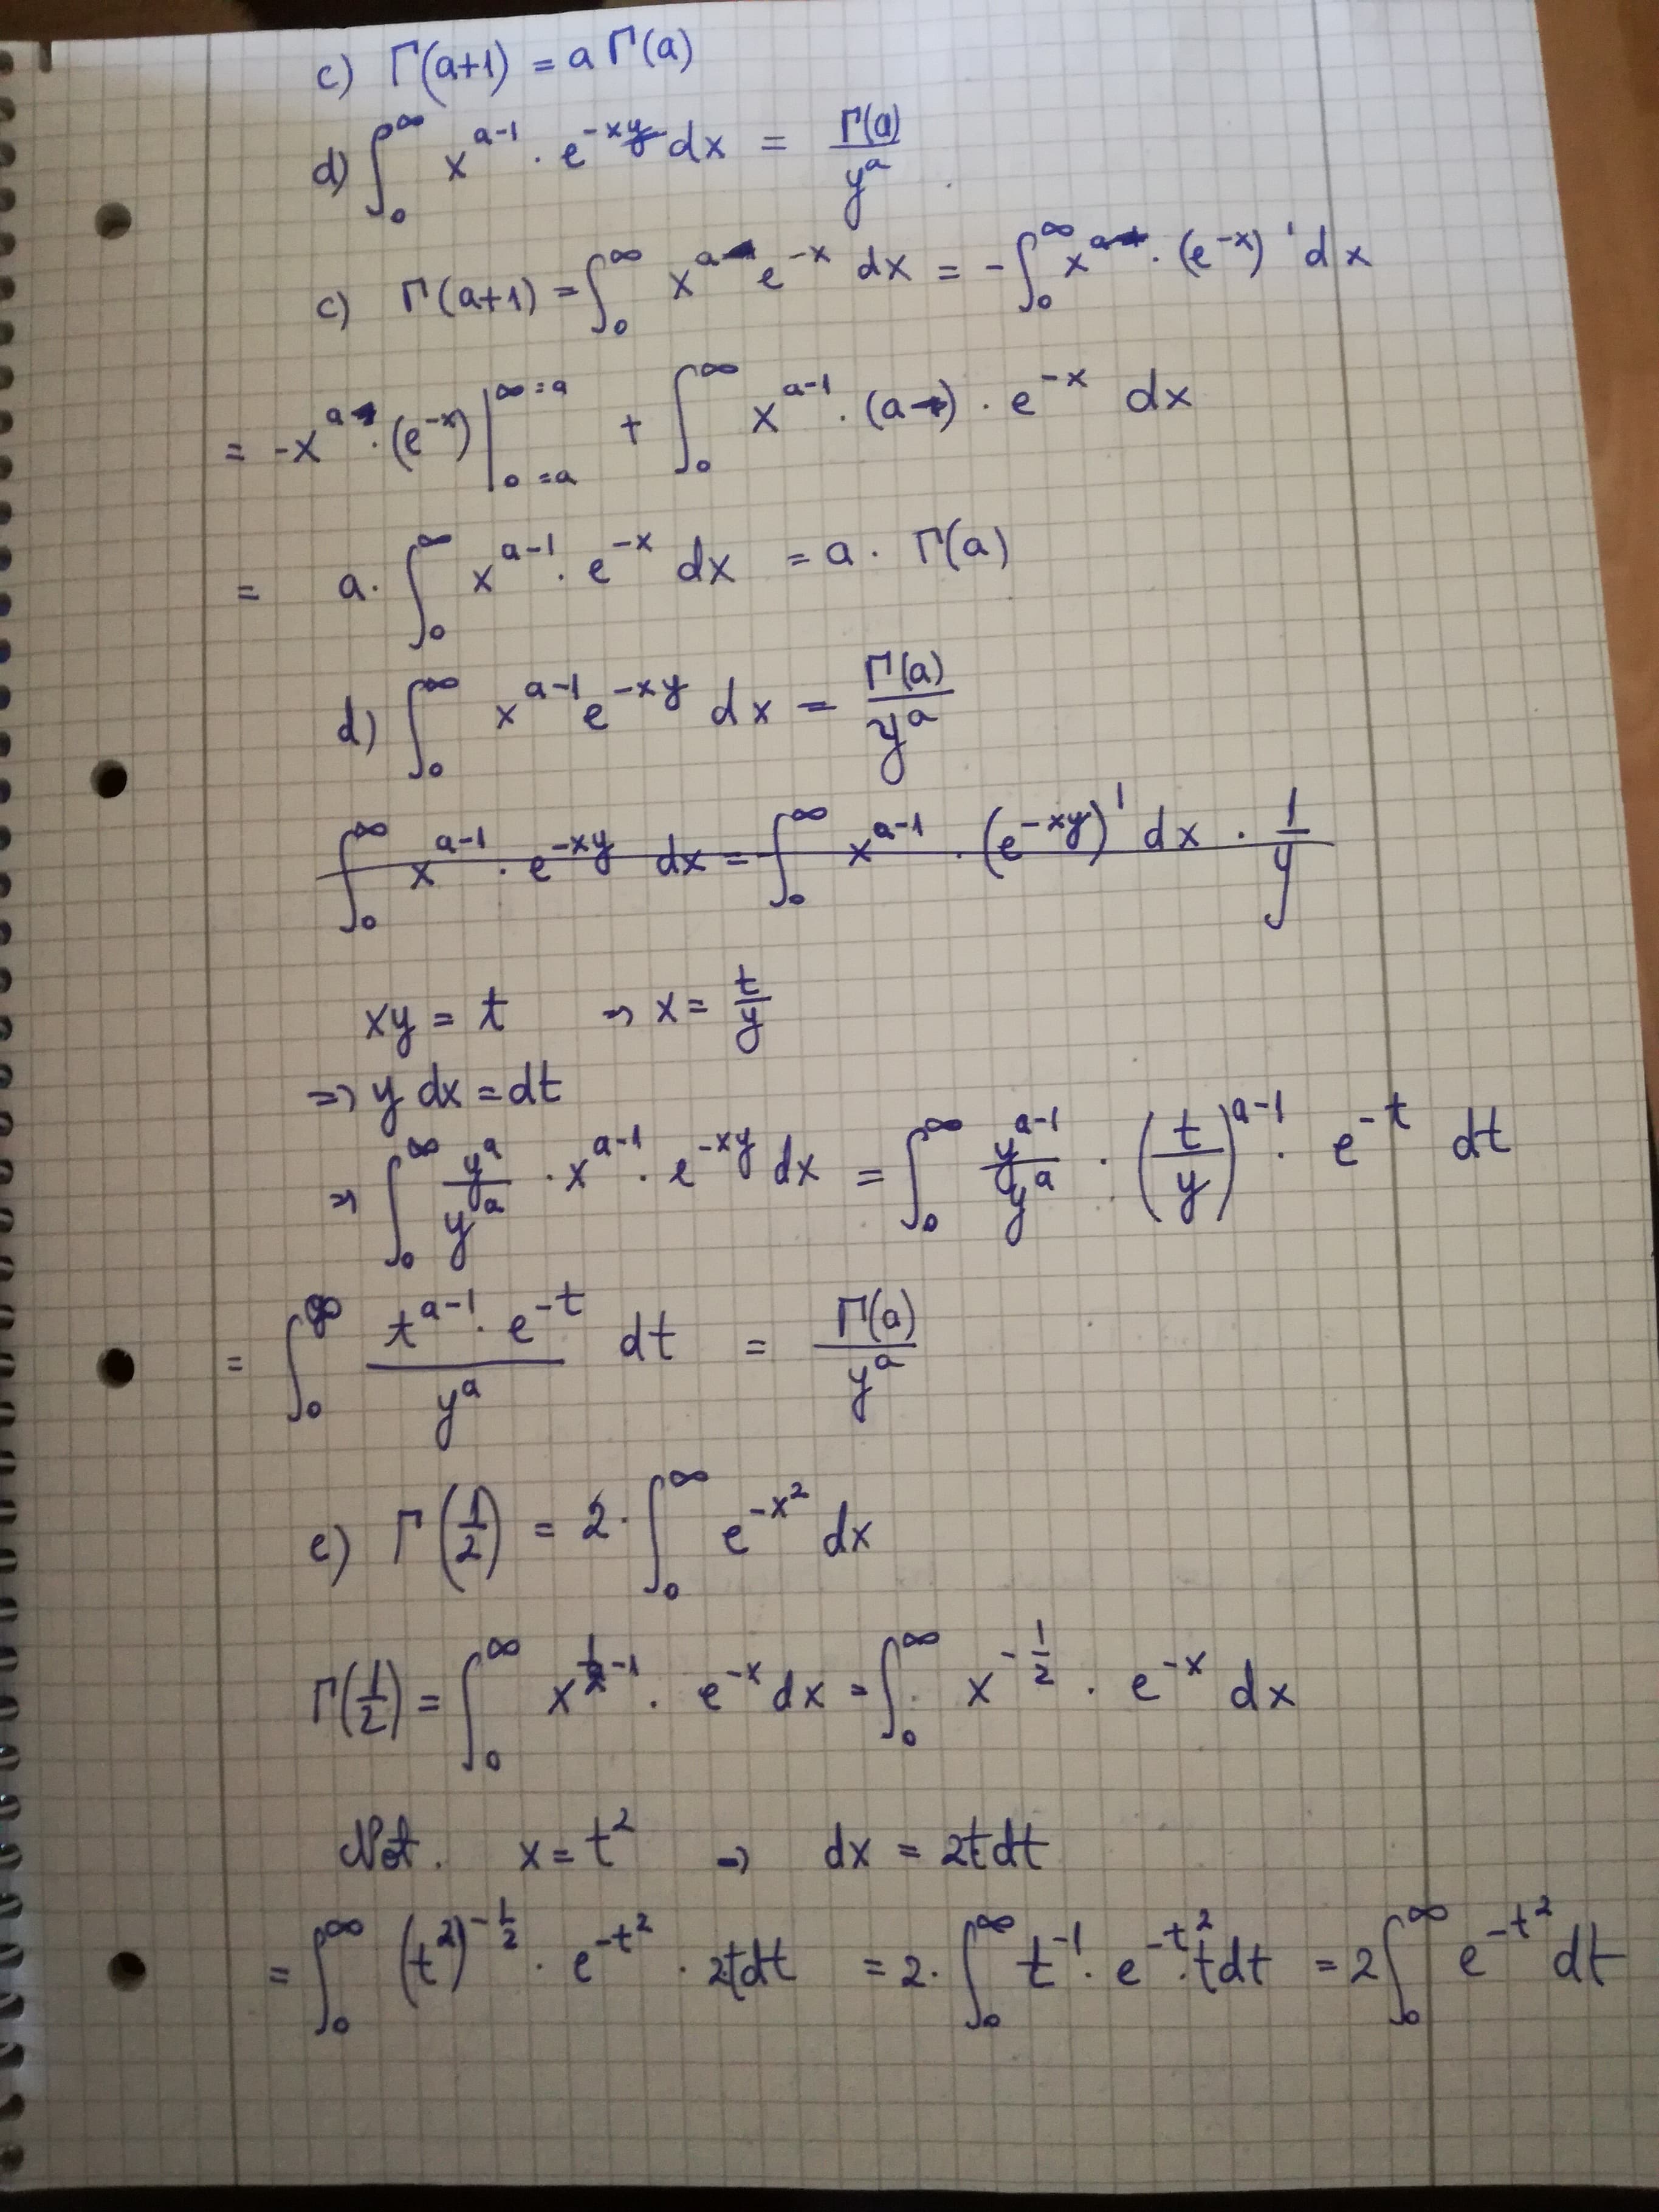 c) Γ(a+1) = a Γ(a)
d) ∫₀^∞ x^{a-1} · e^{-xy} dx = Γ(a)/y^a
c) Γ(a+1) = ∫₀^∞ x^a e^{-x} dx = -∫₀^∞ x^a · (e^{-x})' dx
= -x^a · (e^{-x}) |₀₌ₐ^{∞=a} + ∫₀^∞ x^{a-1} · (a) · e^{-x} dx
= a · ∫₀^∞ x^{a-1} · e^{-x} dx = a · Γ(a)
d) ∫₀^∞ x^{a-1} e^{-xy} dx = Γ(a)/y^a
∫₀^∞ x^{a-1} · e^{-xy} dx = ∫₀^∞ x^{a-1} · (e^{-xy})' dx · 1/y
xy = t → x = t/y
⇒ y dx = dt
⇒ ∫₀^∞ y^a/y^a · x^{a-1} · e^{-xy} dx = ∫₀^∞ y^{a-1}/y^a · (t/y)^{a-1} · e^{-t} dt
= ∫₀^∞ (t^{a-1} · e^{-t})/y^a dt = Γ(a)/y^a
e) Γ(1/2) = 2 · ∫₀^∞ e^{-x²} dx
Γ(1/2) = ∫₀^∞ x^{1/2-1} · e^{-x} dx = ∫₀^∞ x^{-1/2} · e^{-x} dx
Not. x = t² → dx = 2t dt
= ∫₀^∞ (t²)^{-1/2} · e^{-t²} · 2t dt = 2 · ∫₀^∞ t^{-1} · e^{-t²} · t dt = 2 ∫₀^∞ e^{-t²} dt